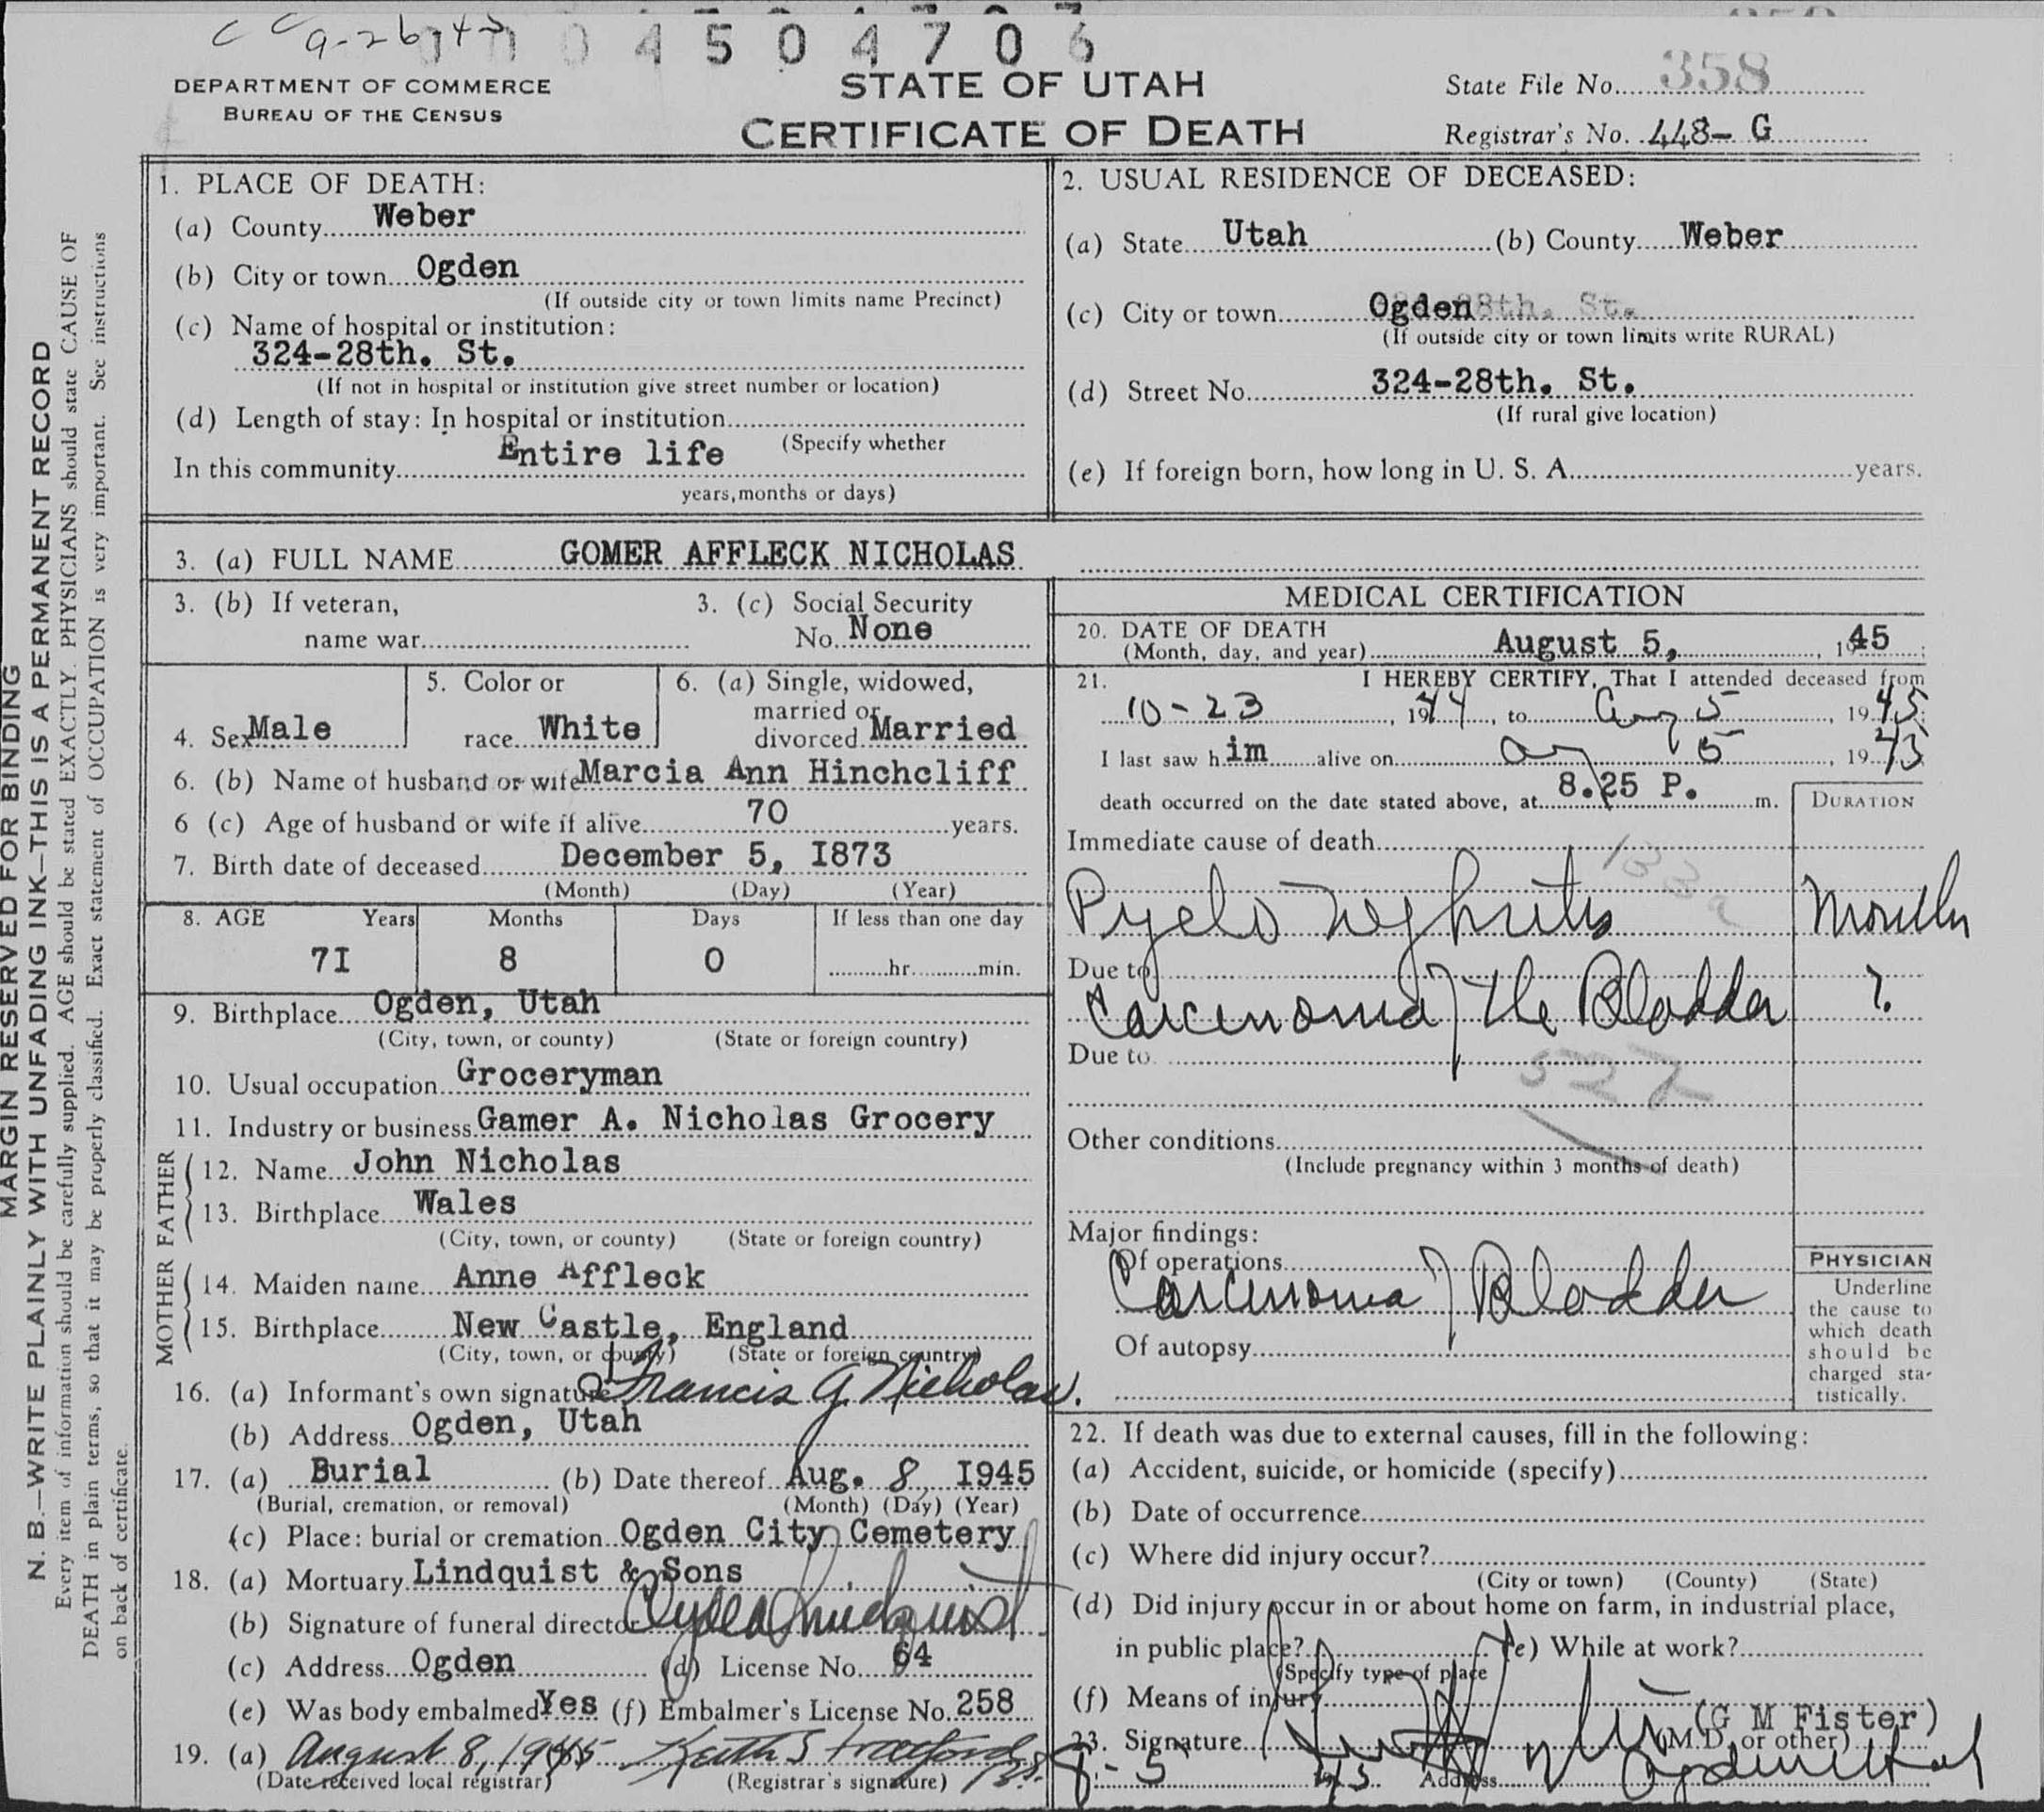 CC 9-26-45
0 4 5 0 4 7 0 6
DEPARTMENT OF COMMERCE
BUREAU OF THE CENSUS
STATE OF UTAH
CERTIFICATE OF DEATH
State File No. 358
Registrar's No. 448- G
MARGIN RESERVED FOR BINDING
N. B.—WRITE PLAINLY WITH UNFADING INK—THIS IS A PERMANENT RECORD
Every item of information should be carefully supplied. AGE should be stated EXACTLY. PHYSICIANS should state CAUSE OF
DEATH in plain terms, so that it may be properly classified. Exact statement of OCCUPATION is very important. See instructions
on back of certificate.
1. PLACE OF DEATH:
(a) County Weber
(b) City or town Ogden
(If outside city or town limits name Precinct)
(c) Name of hospital or institution:
324-28th. St.
(If not in hospital or institution give street number or location)
(d) Length of stay: In hospital or institution
(Specify whether
In this community Entire life
years, months or days)
2. USUAL RESIDENCE OF DECEASED:
(a) State Utah (b) County Weber
(c) City or town Ogden 28th. St.
(If outside city or town limits write RURAL)
(d) Street No. 324-28th. St.
(If rural give location)
(e) If foreign born, how long in U. S. A. years.
3. (a) FULL NAME GOMER AFFLECK NICHOLAS
3. (b) If veteran,
name war
3. (c) Social Security
No. None
4. Sex Male
5. Color or
race White
6. (a) Single, widowed,
married or
divorced Married
6. (b) Name of husband or wife Marcia Ann Hinchcliff
6 (c) Age of husband or wife if alive 70 years.
7. Birth date of deceased December 5, I873
(Month) (Day) (Year)
8. AGE Years Months Days If less than one day
7I 8 0 hr. min.
9. Birthplace Ogden, Utah
(City, town, or county) (State or foreign country)
10. Usual occupation Groceryman
11. Industry or business Gamer A. Nicholas Grocery
FATHER
12. Name John Nicholas
13. Birthplace Wales
(City, town, or county) (State or foreign country)
MOTHER
14. Maiden name Anne Affleck
15. Birthplace New Castle, England
(City, town, or county) (State or foreign country)
16. (a) Informant's own signature Francis G. Nicholas.
(b) Address Ogden, Utah
17. (a) Burial (b) Date thereof Aug. 8, I945
(Burial, cremation, or removal) (Month) (Day) (Year)
(c) Place: burial or cremation Ogden City Cemetery
18. (a) Mortuary Lindquist & Sons
(b) Signature of funeral director Clyde Lindquist
(c) Address Ogden (d) License No. 64
(e) Was body embalmed? Yes (f) Embalmer's License No. 258
19. (a) August 8, 1945 Keith Stratford
(Date received local registrar) (Registrar's signature)
MEDICAL CERTIFICATION
20. DATE OF DEATH
(Month, day, and year) August 5, 1945
21. I HEREBY CERTIFY, That I attended deceased from
10-23, 1944, to Aug 5, 1945
I last saw him alive on Aug 5, 1945
death occurred on the date stated above, at 8.25 P. m.
DURATION
Immediate cause of death 133a
Pyelo Nephritis Months
Due to
Carcinoma of the Bladder ?
Due to
527
Other conditions
(Include pregnancy within 3 months of death)
Major findings:
Of operations
Carcinoma of Bladder
Of autopsy
PHYSICIAN
Underline
the cause to
which death
should be
charged sta-
tistically.
22. If death was due to external causes, fill in the following:
(a) Accident, suicide, or homicide (specify)
(b) Date of occurrence
(c) Where did injury occur?
(City or town) (County) (State)
(d) Did injury occur in or about home on farm, in industrial place,
in public place? (e) While at work?
(Specify type of place
(f) Means of injury
(G M Fister)
23. Signature (M.D. or other)
8-5 1945 Address Ogden Utah